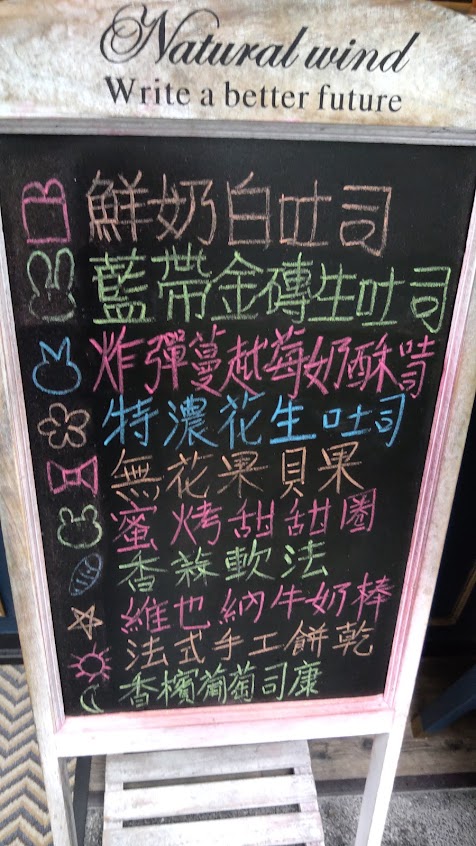 Natural wind
Write a better future
鮮奶白吐司
藍帶金磚生吐司
炸彈蔓越莓奶酥
特濃花生吐司
無花果貝果
蜜烤甜甜圈
香蒜軟法
維也納牛奶棒
法式手工餅乾
香檳葡萄司康